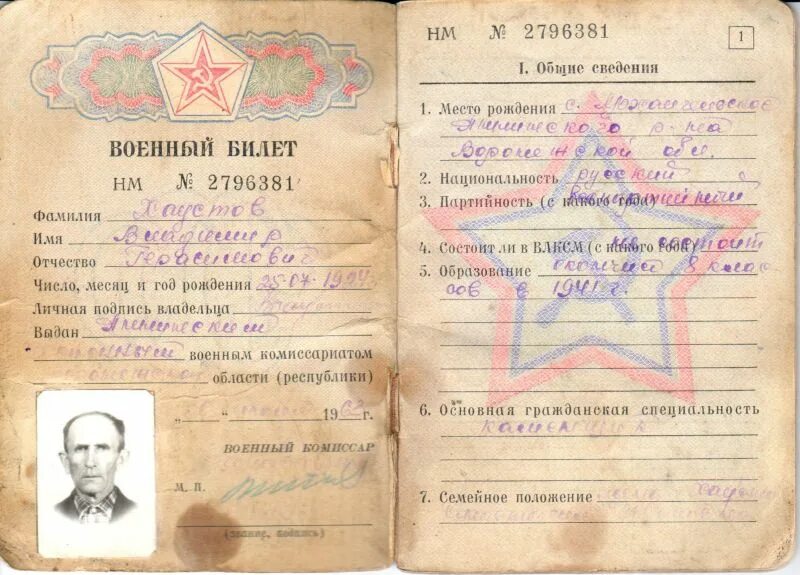 ВОЕННЫЙ БИЛЕТ
НМ № 2796381
Фамилия Хаустов
Имя Владимир
Отчество Герасимович
Число, месяц и год рождения 25-07-1924
Личная подпись владельца
Выдан Аннинским
районный военным комиссариатом
области (республики)
19 г.
ВОЕННЫЙ КОМИССАР
М. П.
(звание, подпись)
НМ № 2796381
1
I. Общие сведения
1. Место рождения с.
Аннинского р-на
Воронежской обл.
2. Национальность русский
3. Партийность (с какого года) беспартийный
4. Состоит ли в ВЛКСМ (с какого года) не состоит
5. Образование окончил 8 клас
сов в 1941 г.
6. Основная гражданская специальность
каменщик
7. Семейное положение